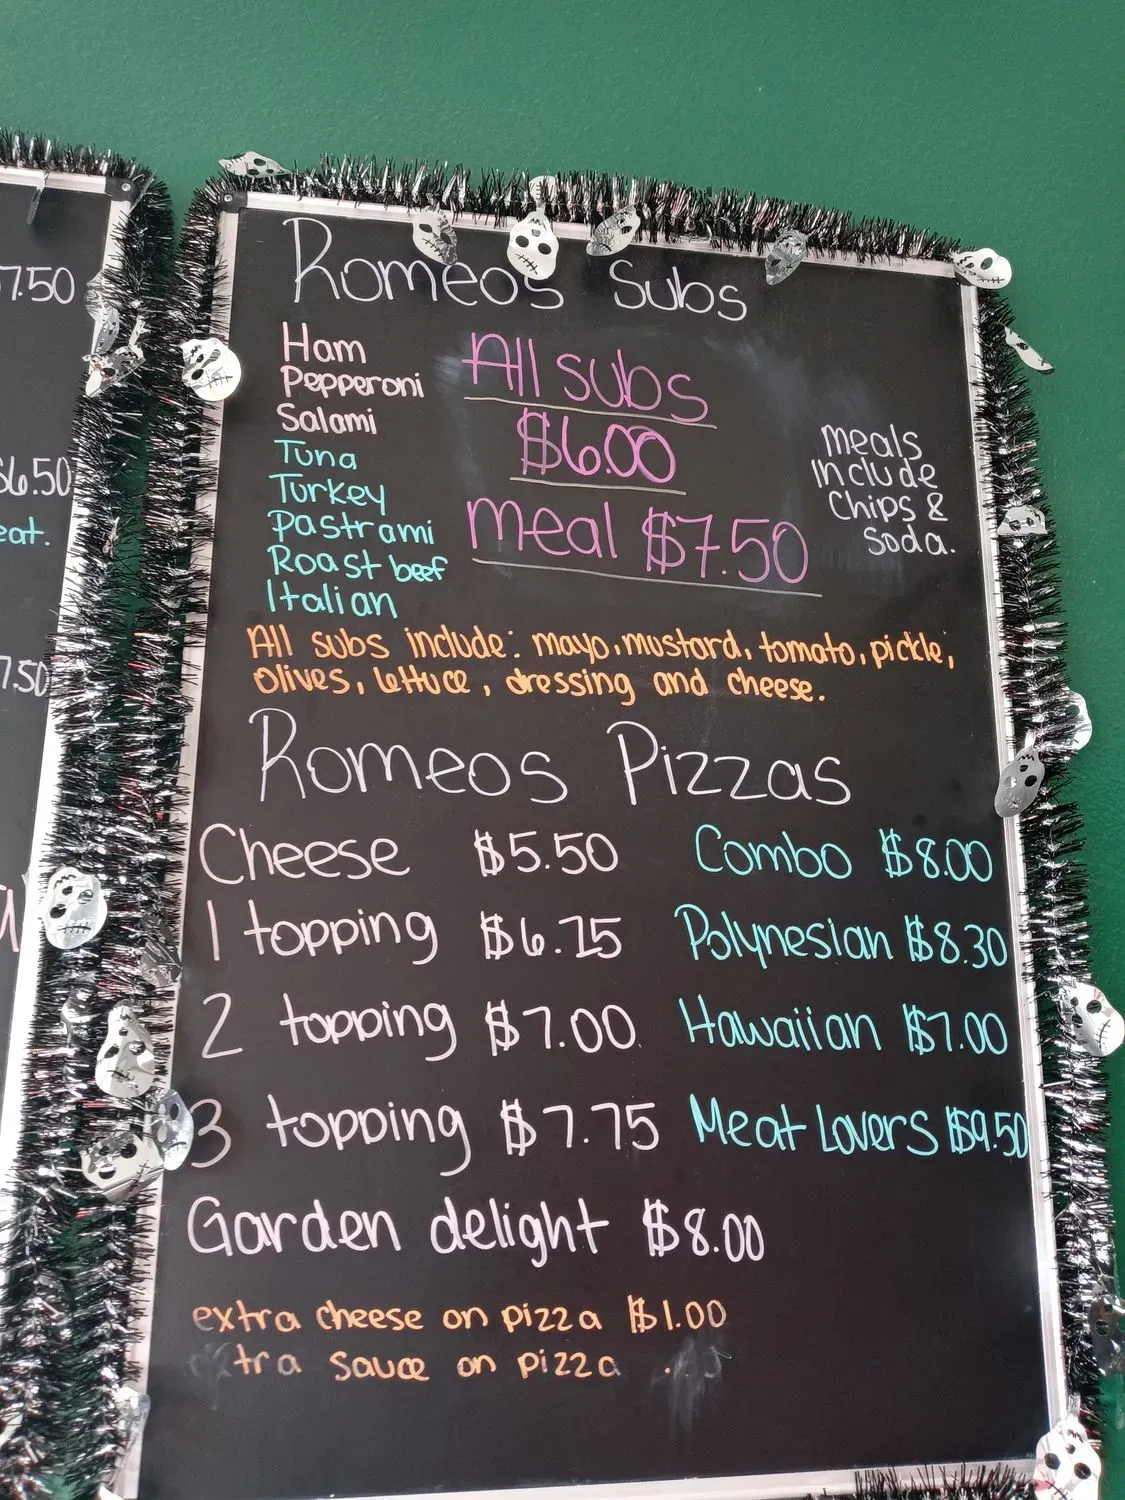 7.50
$6.50
eat.
7.50
Romeos Subs
Ham
Pepperoni
Salami
Tuna
Turkey
Pastrami
Roast beef
Italian
All subs
$6.00
meal $7.50
meals
include
Chips &
soda.
All subs include: mayo, mustard, tomato, pickle,
olives, lettuce, dressing and cheese.
Romeos Pizzas
Cheese $5.50
1 topping $6.25
2 topping $7.00
3 topping $7.75
Garden delight $8.00
Combo $8.00
Polynesian $8.30
Hawaiian $7.00
Meat Lovers $9.50
extra cheese on pizza $1.00
tra sauce on pizza